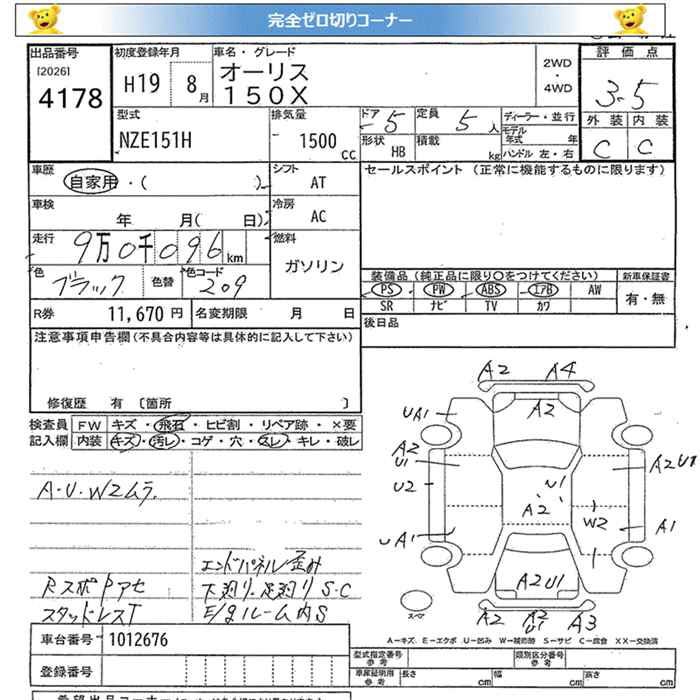 完全ゼロ切りコーナー
出品番号
[2026]
4178
初度登録年月
H19 8月
車名・グレード
オーリス
150X
2WD
・
4WD
評価点
3.5
外装 内装
C C
型式
NZE151H
排気量
1500 CC
ドア 5
定員 5人
形状 HB
積載 kg
ディーラー・並行
モデル年式 年
ハンドル 左・右
車歴
自家用・( )
シフト
AT
車検
年 月( 日)
冷房
AC
走行
9万0千096km
燃料
ガソリン
色
ブラック
色替
色コード
209
セールスポイント (正常に機能するものに限ります)
装備品 (純正品に限り○をつけてください)
新車保証書
PS PW ABS エアB AW
SR ナビ TV カワ
有・無
R券 11,670円
名変期限 月 日
後日品
注意事項申告欄 (不具合内容等は具体的に記入して下さい)
修復歴 有 〔箇所 〕
検査員記入欄
FW キズ・飛石・ヒビ割・リペア跡・×要
内装 キズ・汚レ・コゲ・穴・スレ・キレ・破レ
A・U・W2ムラ
エンドパネル歪み
下廻り・足廻りS・C
スタッドレスT
E/gルーム内S
A2 A4
UA1 A2
A2
U1
U2
UA1
U1
A2
W2
A2U1
A1
A2U1
スペア
A2 A2
U1 A3
A-キズ E-エクボ U-凹み W-補修跡 S-サビ C-腐食 XX-交換済
車台番号 1012676
登録番号
型式指定番号
参考
類別区分番号
参考
車庫証明用
参考
長さ cm
幅 cm
高さ cm